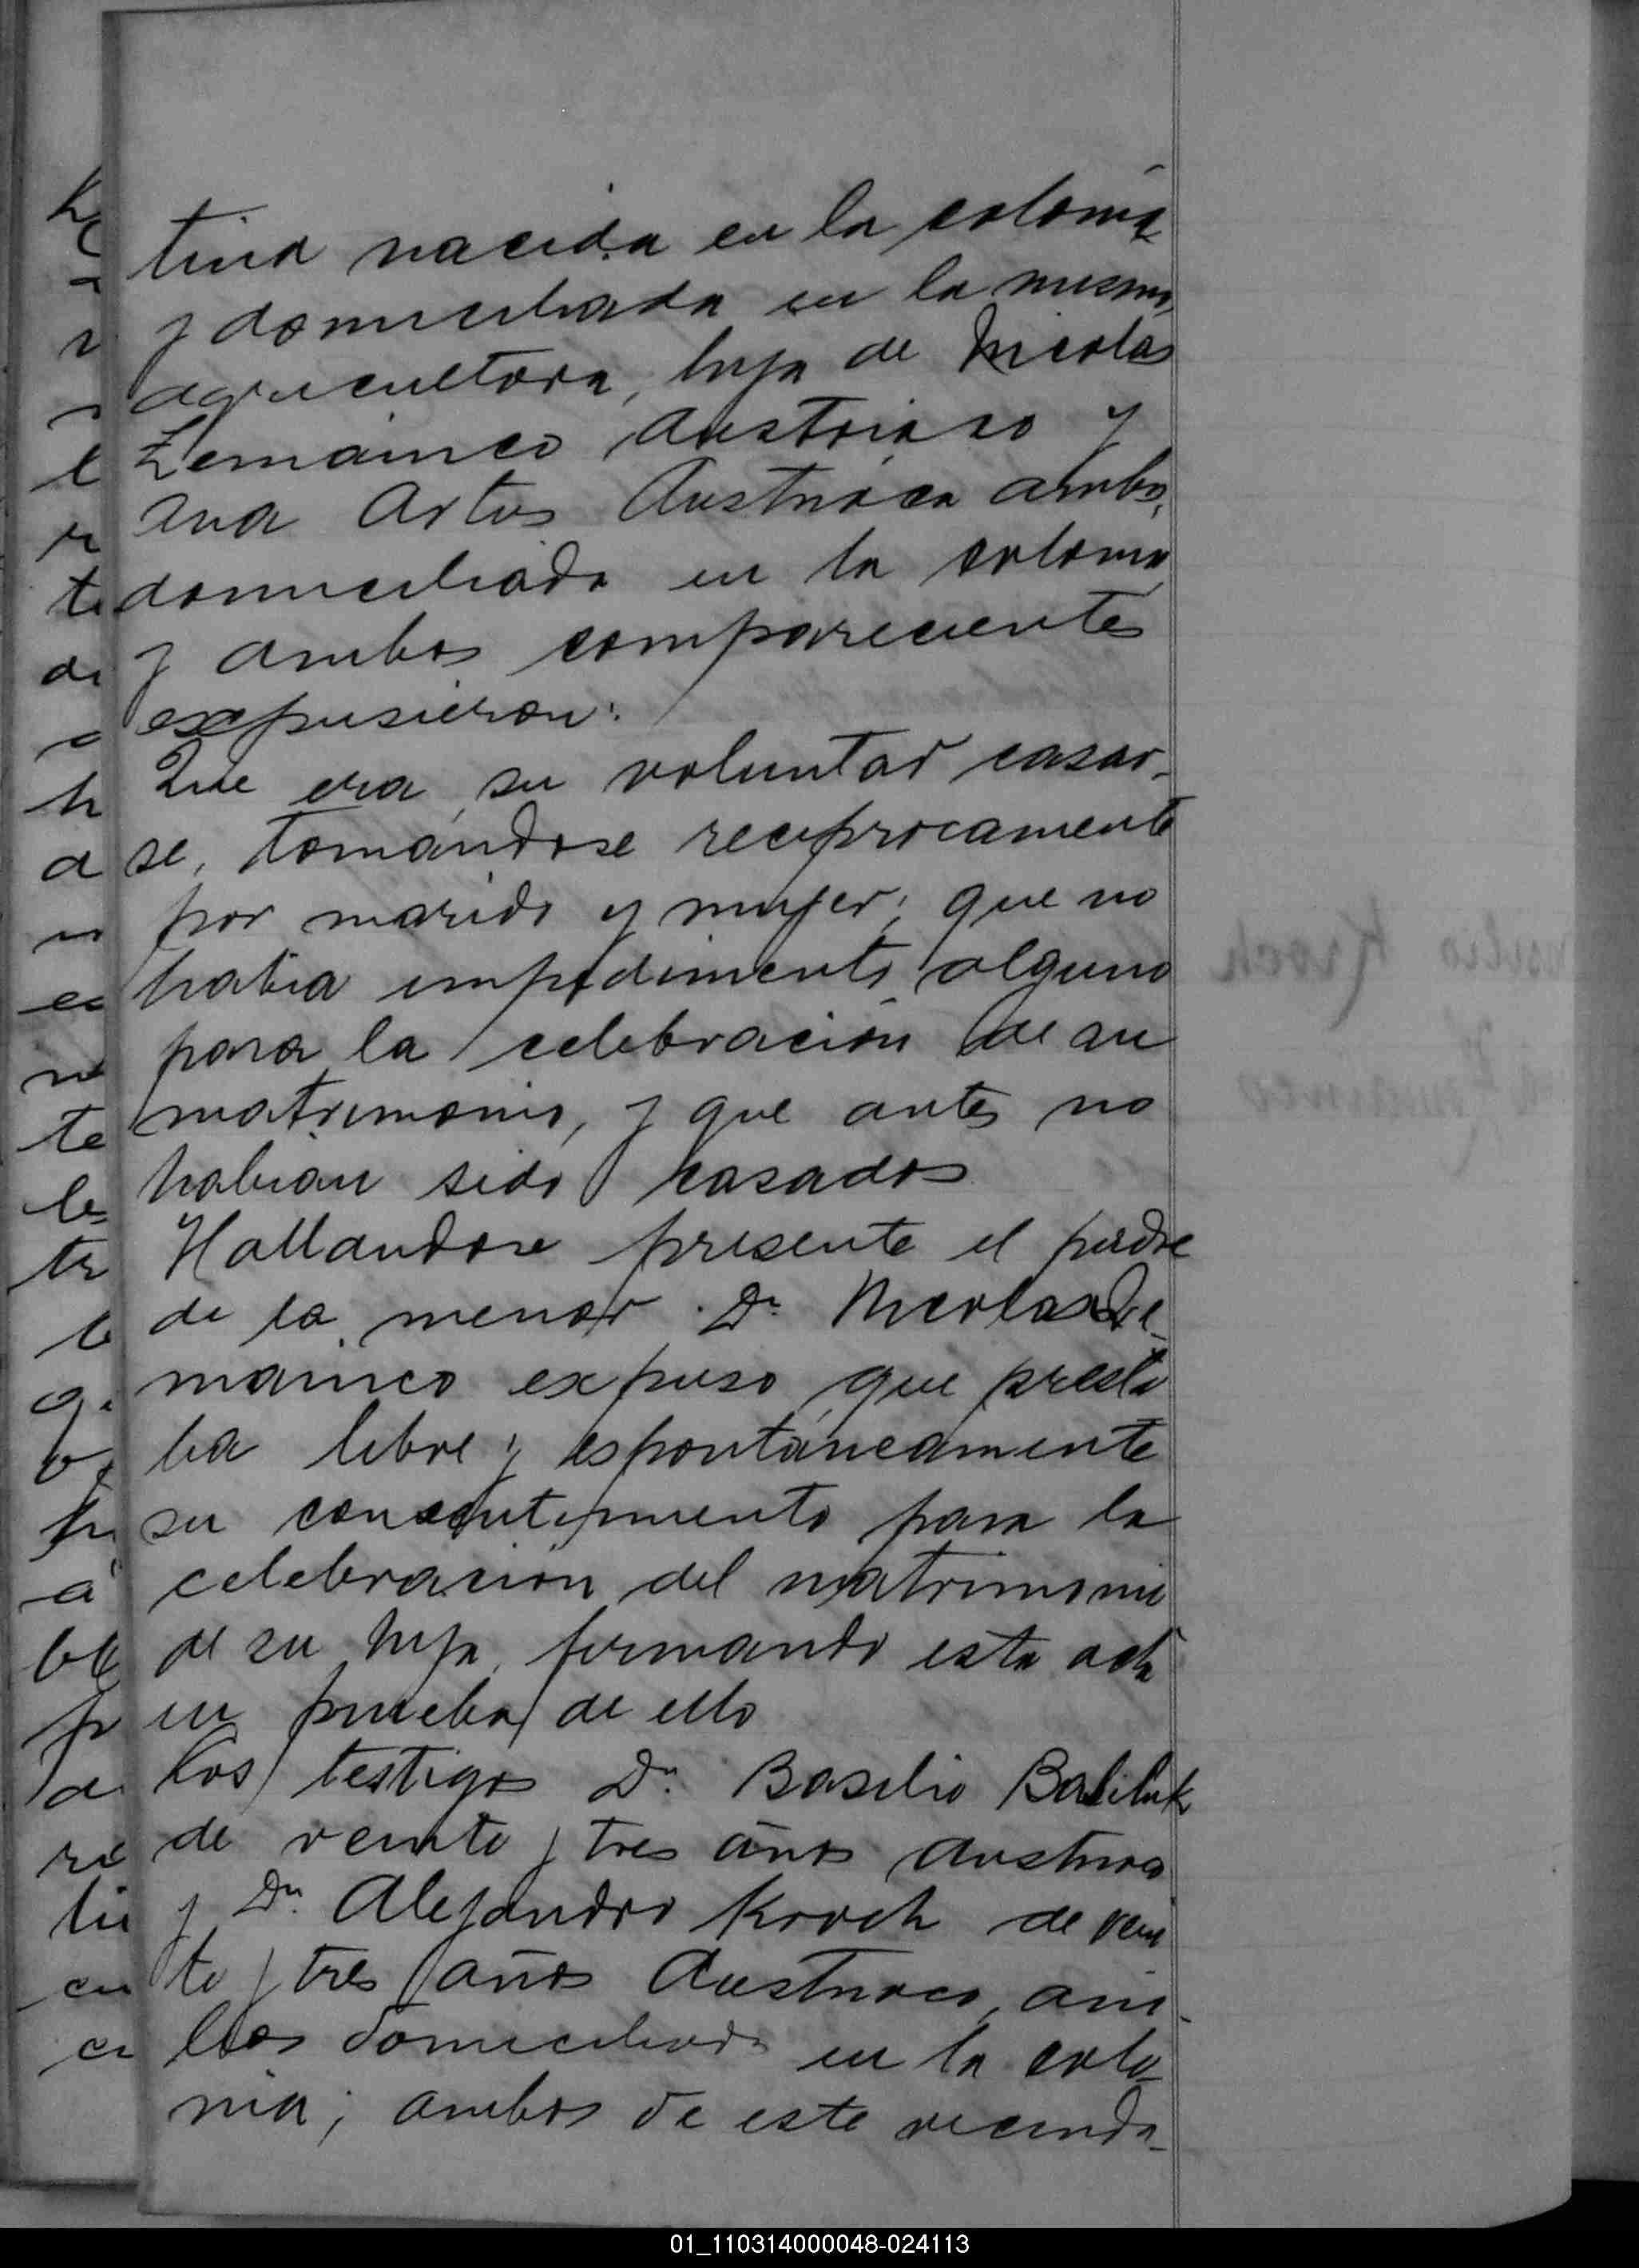 tina nacida en la colonia
y domiciliada en la misma
agricultora, hija de Nicolas
Zemainco Austriaco y
Ana Artus Austriaca ambos
domiciliado en la colonia
y ambos comparecientes
expusieron:
Que era su voluntad casar-
se, tomándose reciprocamente
por marido y mujer; que no
habia impedimento alguno
para la celebración de su
matrimonio, y que antes no
habian sido casados
Hallandose presente el padre
de la menor Dn Nicolas Ze-
mainco expuso que presta
ba libre y espontáneamente
su consentimiento para la
celebracion del matrimonio
de su hija, firmando esta acta
en prueba de ello
Los testigos Dn Basilio
de veinte y tres años Austriaco
y Dn Alejandro Kroch de vein
te y tres años Austriaco, am-
bos domiciliado en la colo-
nia; ambos de este vecinda-
Kroch
01_110314000048-024113